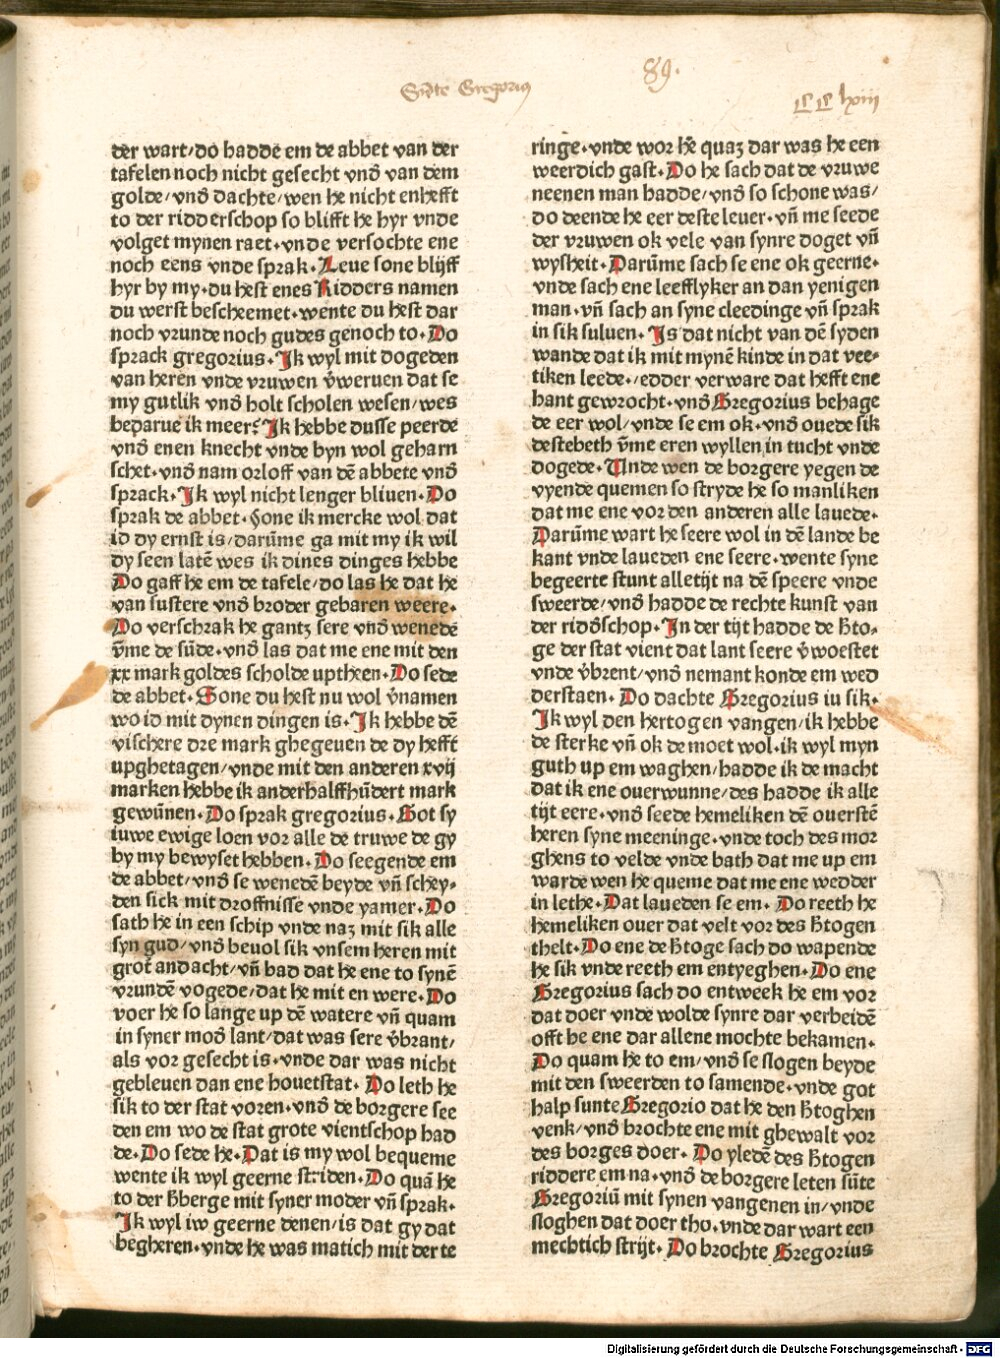 Sūte Gregorius
89.
CC lxiii
der wart/do hadde em de abbet van der
tafelen noch nicht gesecht vnd̄ van dem
golde/vnd̄ dachte/wen he nicht enhefft
to der ridderschop so blifft he hyr vnde
volget mynen raet.vnde versochte ene
noch eens vnde sprak.Leue sone blijff
hyr by my.du hest enes Ridders namen
du werst bescheemet.wente du hest dar
noch vrunde noch gudes genoch to.Do
sprack gregorius.Jk wyl mit dogeden
van heren vnde vruwen v̄weruen dat se
my gutlik vnd̄ holt scholen wesen/wes
beparue ik meer?Jk hebbe dusse peerde
vnd̄ enen knecht vnde byn wol geharn
schet.vnd̄ nam orloff van dē abbete vnd̄
sprack.Jk wyl nicht lenger bliuen.Do
sprak de abbet.Sone ik mercke wol dat
id dy ernst is/darūme ga mit my ik wil
dy seen latē wes ik dines dinges hebbe
Do gaff he em de tafele/do las he dat he
van sustere vnd̄ broder gebaren weere.
Do verschrak he gantz sere vnd̄ wenedē
v̄me de sūde.vnd̄ las dat me ene mit den
xx mark goldes scholde uptheen.Do sede
de abbet.Sone du hest nu wol v̄namen
wo id mit dynen dingen is.Jk hebbe dē
vischere dre mark ghegeuen de dy hefft
upghetagen/vnde mit den anderen xvij
marken hebbe ik anderhalffhūdert mark
gewūnen.Do sprak gregorius.Got sy
iuwe ewige loen vor alle de truwe de gy
by my bewyset hebben.Do seegende em
de abbet/vnd̄ se wenedē beyde vn̄ schey-
den sick mit droffnisse vnde yamer.Do
sath he in een schip vnde naz mit sik alle
syn gud/vnd̄ bevol sik vnsem heren mit
grot andacht/vn̄ bad dat he ene to synē
vrundē vogede/dat he mit en were.Do
voer he so lange up dē watere vn̄ quam
in syner mod̄ lant/dat was sere v̄brant/
als vor gesecht is.vnde dar was nicht
gebleuen dan ene houetstat.Do leth he
sik to der stat voren.vnd̄ de borgere see
den em wo de stat grote vientschop had
de.Do sede he.Dat is my wol bequeme
wente ik wyl geerne striden.Do quā he
to der h̄berge mit syner moder vn̄ sprak.
Jk wyl iw geerne denen/is dat gy dat
begheren.vnde he was matich mit der te
ringe.vnde wor he quaz dar was he een
weerdich gast.Do he sach dat de vruwe
neenen man hadde/vnd̄ so schone was/
do deende he eer deste leuer.vn̄ me seede
der vruwen ok vele van synre doget vn̄
wysheit.Darūme sach se ene ok geerne.
vnde sach ene leefflyker an dan yenigen
man.vn̄ sach an syne cleedinge vn̄ sprak
in sik suluen.Js dat nicht van dē syden
wande dat ik mit mynē kinde in dat vee-
tiken leede./edder verware dat hefft ene
hant gewrocht.vnd̄ Gregorius behage
de eer wol/vnde se em ok.vnd̄ ouede sik
destebeth v̄me eren wyllen in tucht vnde
dogede.Vnde wen de borgere yegen de
vyende quemen so stryde he so manliken
dat me ene vor den anderen alle lauede.
Darūme wart he seere wol in dē lande be
kant vnde laueden ene seere.wente syne
begeerte stunt alletijt na dē speere vnde
sweerde/vnd̄ hadde de rechte kunst van
der ridd̄schop.Jn der tijt hadde de h̄to-
ge der stat vient dat lant seere v̄woestet
vnde v̄brent/vnd̄ nemant konde em wed
derstaen.Do dachte Gregorius iu sik.
Jk wyl den hertogen vangen/ik hebbe
de sterke vn̄ ok de moet wol.ik wyl myn
guth up em waghen/hadde ik de macht
dat ik ene ouerwunne/des hadde ik alle
tijt eere.vnd̄ seede hemeliken dē ouerstē
heren syne meeninge.vnde toch des mor
ghens to velde vnde bath dat me up em
warde wen he queme dat me ene wedder
in lethe.Dat laueden se em.Do reeth he
hemeliken ouer dat velt vor des h̄togen
thelt.Do ene de h̄toge sach do wapende
he sik vnde reeth em entyeghen.Do ene
Gregorius sach do entweek he em vor
dat doer vnde wolde synre dar verbeidē
offt he ene dar allene mochte bekamen.
Do quam he to em/vnd̄ se slogen beyde
mit den sweerden to samende.vnde got
halp sunte Gregorio dat he den h̄toghen
venk/vnd̄ brochte ene mit ghewalt vor
des borges doer.Do yledē des h̄togen
riddere em na.vnd̄ de borgere leten sūte
Gregoriū mit synen vangenen in/vnde
sloghen dat doer tho.vnde dar wart een
mechtich strijt.Do brochte Gregorius
Digitalisierung gefördert durch die Deutsche Forschungsgemeinschaft - DFG